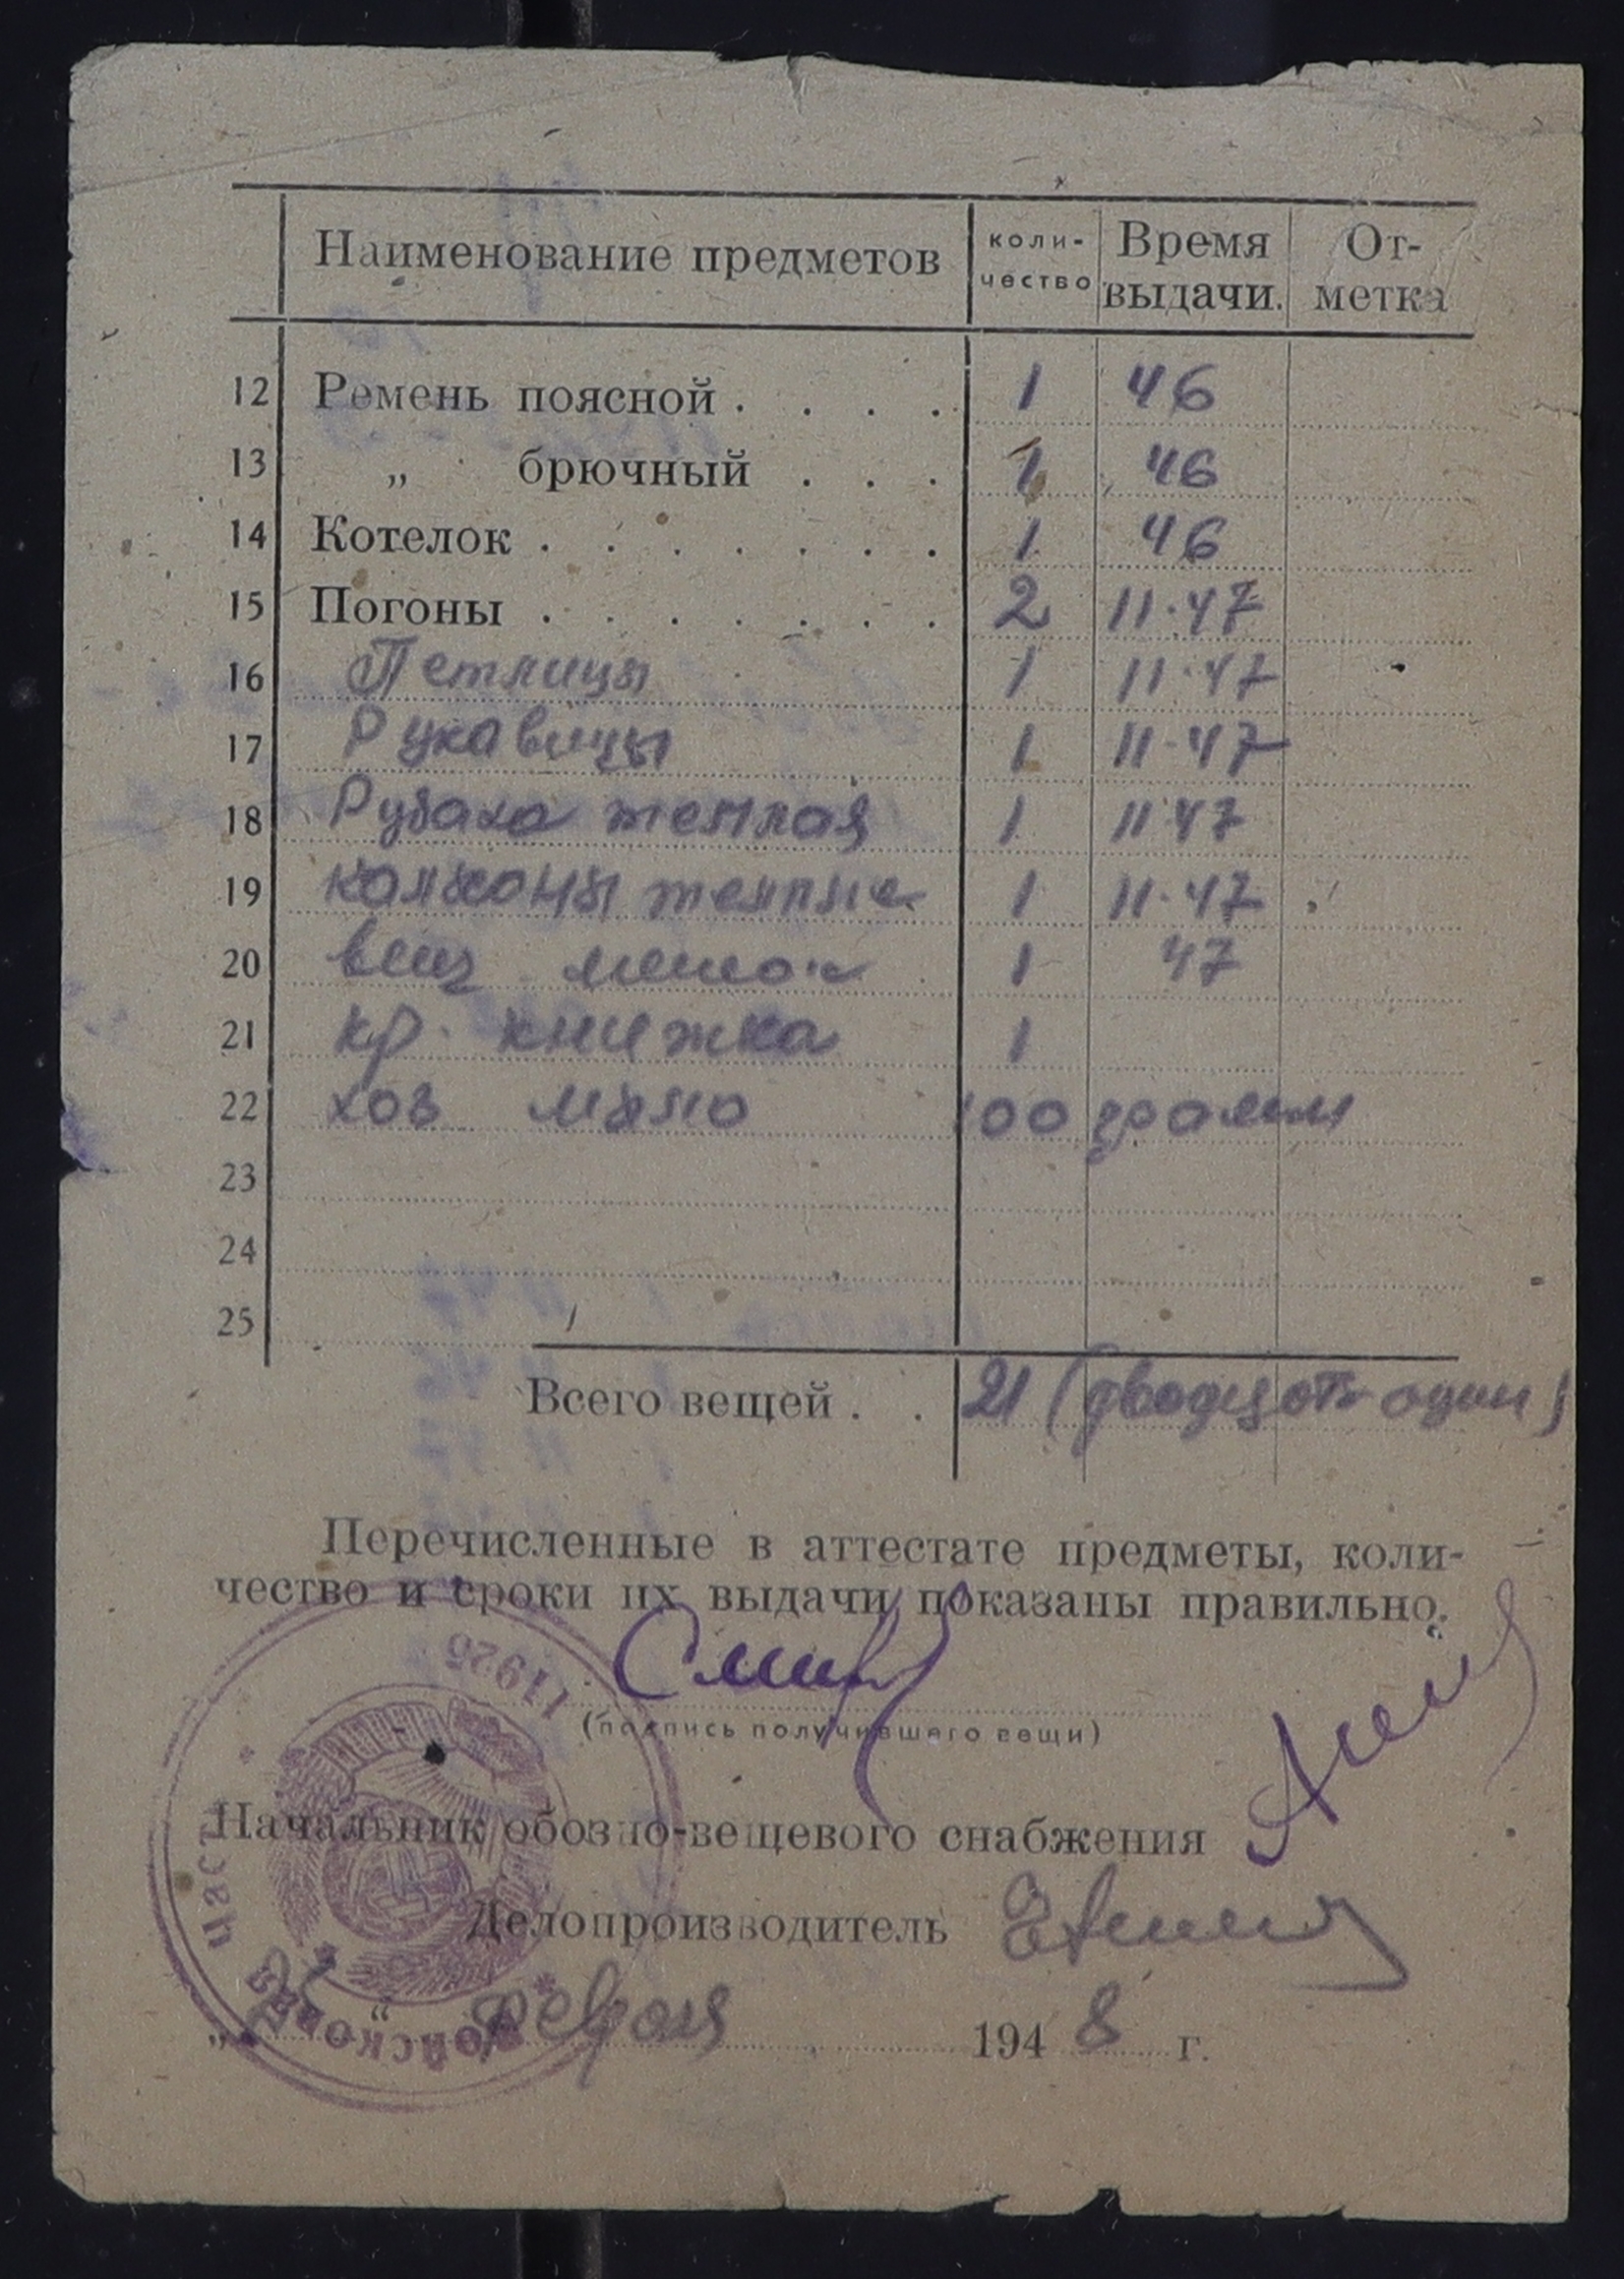 Наименование предметов коли-чество Время выдачи. От-метка
12 Ремень поясной . . . . 1 46
13 „ брючный . . . 1 46
14 Котелок . . . . . . . 1 46
15 Погоны . . . . . . . 2 11·47
16 Петлицы 1 11·47
17 Рукавицы 1 11·47
18 Рубаха теплая 1 11·47
19 кальсоны теплые 1 11·47
20 вещ мешок 1 47
21 кр. книжка 1
22 хоз мыло 100 грамм
23
24
25
Всего вещей . . 21 (двадцать один)
Перечисленные в аттестате предметы, коли-
чество и сроки их выдачи показаны правильно.
(подпись получившего вещи)
Начальник обозно-вещевого снабжения
Делопроизводитель
„ “ февраля 1948 г.
Войсковая часть 11925